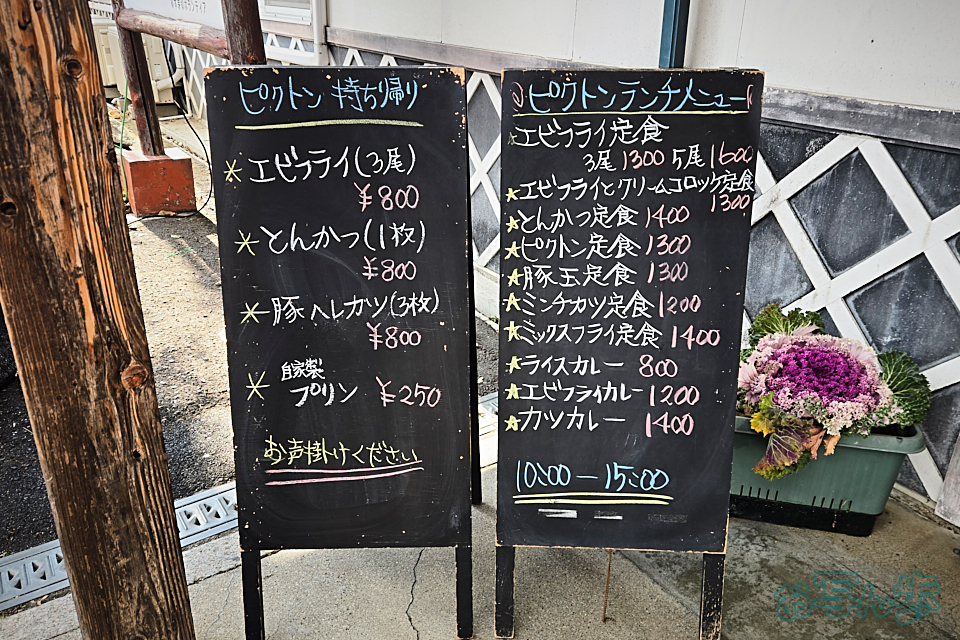 ピクトン 持ち帰り
エビフライ(3尾)
¥800
とんかつ(1枚)
¥800
豚ヘレカツ(3枚)
¥800
自家製
プリン ¥250
お声掛けください
ピクトンランチメニュー
エビフライ定食
3尾 1300 5尾 1600
エビフライとクリームコロッケ定食
1300
とんかつ定食 1400
ピクトン定食 1300
豚玉定食 1300
ミンチカツ定食 1200
ミックスフライ定食 1400
ライスカレー 800
エビフライカレー 1200
カツカレー 1400
10:00ー15:00